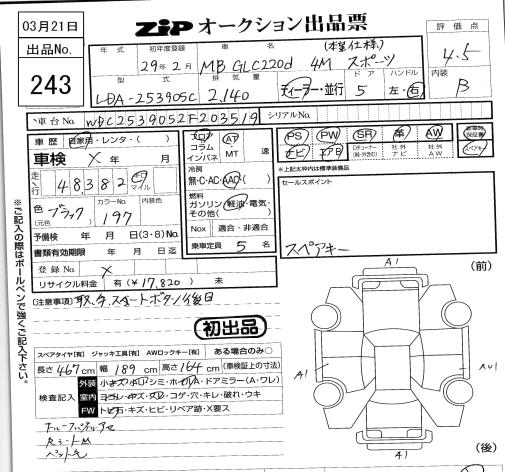 03月21日
ZIP オークション出品票
出品No.
243
評価点
4.5
内装
B
年式 初年度登録 車名 (本革仕様)
29年2月 MB GLC220d 4M スポーツ
型式 排気量 ドア ハンドル
LDA-253905C 2,140 ディーラー・並行 5 左・右
車台No. WDC2539052F203519 シリアルNo.
車歴 自家用・レンタ・( )
車検 X 年 月
走行 48,382 km マイル
色(元色) ブラック カラーNo. 197 内装色
予備検 年 月 日(3・8)No.
書類有効期限 年 月 日迄
登録No. X
リサイクル料金 有(¥17,820) 未
フロア コラム インパネ
AT MT 速
冷房
無・C・AC・AAC
燃料
ガソリン・軽油・電気・その他( )
Nox 適合・非適合
乗車定員 5 名
PS PW SR 革 AW
ナビ エアB Dチューナー(純・外含む) 社外ナビ 社外AW
スペアキー
*上記太枠内は標準装備品
セールスポイント
スペアキー
(注意事項) 取、タ、スタートボタン後日
初出品
スペアタイヤ[有] ジャッキ工具[有] AWロックキー[有] ある場合のみ○
長さ 467cm 幅 189cm 高さ 164cm (車検証上の寸法)
検査記入
外装 小キズ・凹・シミ・ホイル・ドアミラー(A・ワレ)
室内 ヨゴレ・キズ・スレ・コゲ・穴・キレ・破れ・ウキ
FW トビ石・キズ・ヒビ・リペア跡・X要ス
※ご記入の際はボールペンで強くご記入下さい。
A1 (前)
A1
A1 (後)